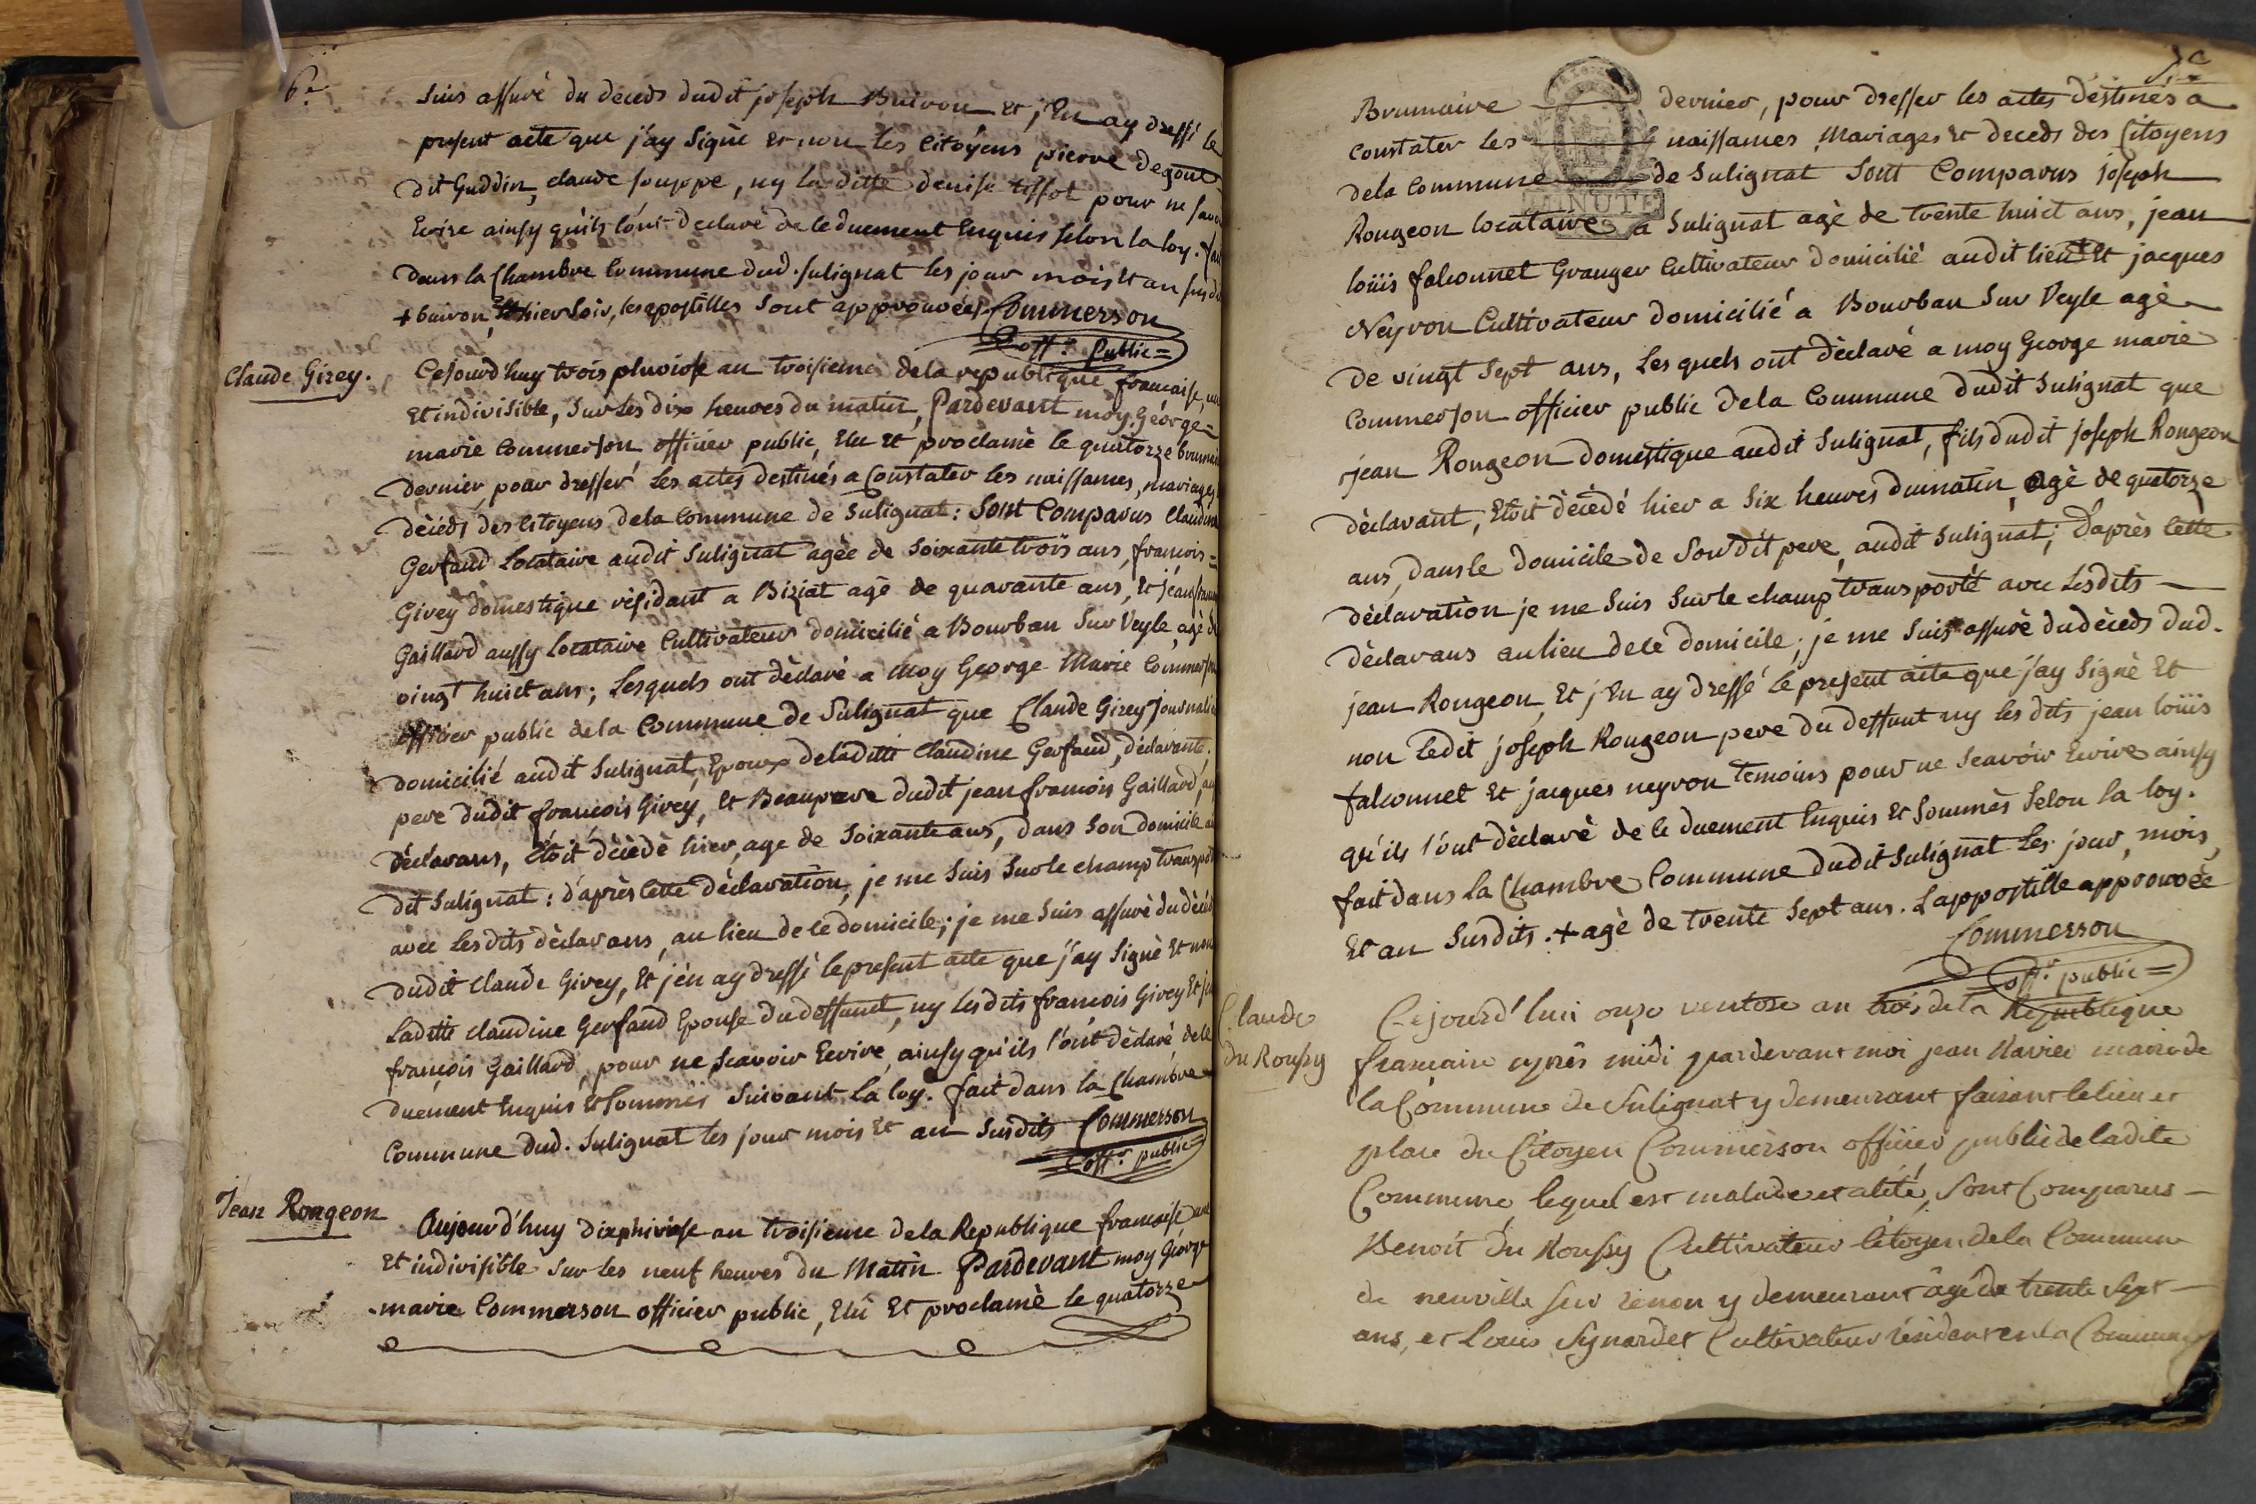 6e
suis assuré du déceds dudit joseph Buiron et j'en ay dressé le
present acte que j'ay signé et non les citoyens pierre degout
dit Guddin, claude souppe, ny la ditte denise tissot pour ne
Ecrire ainsy qu'ils l'ont declaré de le duement Enquis selon la loy.
dans la Chambre Commune dud. sulignat les jour mois et an susd
+ buiron, Et hier soir, les apostilles sont approuvées Commerson
off.r public =
Claude Girey.
Cejourd'huy trois pluviose an troisieme de la republique francaise, une
Et indivisible, sur les dix heures du matin, Pardevant moy George =
marie Commerson officier public, Elu et proclamé le quatorze brumaire
dernier, pour dresser les actes destinés a Constater les naissances, mariages
décéds des Citoyens de la Commune de Sulignat : Sont Comparus Claudine
Gerfaud Locataire audit Sulignat agée de Soixante trois ans, francois =
Girey domestique résidant a Biziat agé de quarante ans, et jean
Gaillard aussy Locataire Cultivateur domicilié a Bourban Sur Veyle, agé de
vingt huict ans ; Lesquels ont déclaré a moy George Marie Commerson
officier public de la Commune de Sulignat que Claude Girey Journalier
domicilié audit Sulignat, Epoux de laditte Claudine Gerfaud, déclarante,
pere dudit francois Girey, et Beaupere dudit jean francois Gaillard,
déclarans, étoit décédé hier, age de Soixante ans, dans son domicile au
dit Sulignat : d'après cette déclaration, je me suis sur le champ transporté
avec Lesdits déclarans, au lieu de ce domicile ; je me suis assuré du décéd
dudit Claude Girey, Et j'en ay dressé le present acte que j'ay Signé Et non
Laditte Claudine Gerfaud Epouse du deffunct, ny Lesdits francois Girey Et
francois Gaillard, pour ne Scavoir Ecrire, ainsy qu'ils l'ont déclaré de le
duement Enquis et Sommés Suivant La loy. fait dans la Chambre
Commune dud. Sulignat les jour mois et an Susdits Commerson
off.r public =
Jean Rongeon
Aujourd'huy dix pluviose an troisieme de la Republique francaise une
Et indivisible Sur les neuf heures du Matin Pardevant moy George
marie Commerson officier public, Elu Et proclamé le quatorze
Brumaire dernier, pour dresser les actes destinés a
constater les naissances, Mariages et deceds des Citoyens
de la Commune de Sulignat Sont Comparus joseph
Rongeon locataire a Sulignat agé de trente huict ans, jean
loüis falconnet Granger Cultivateur domicilié audit lieu + Et jacques
Neyron Cultivateur domicilié a Bourban Sur Veyle agé
de vingt Sept ans, Lesquels ont déclaré a moy George marie
Commerson officier public de la Commune dudit Sulignat que
jean Rongeon domestique audit Sulignat, fils dudit joseph Rongeon
déclarant, Etoit décédé hier a Six heures du matin, agé de quatorze
ans, dans le domicile de Son dit pere, audit Sulignat ; d'après cette
déclaration je me suis sur le champ transporté avec Lesdits
déclarans au lieu de ce domicile ; je me suis assuré du déceds dud.
jean Rongeon, Et j'En ay dressé le present acte que j'ay Signé Et
non Ledit joseph Rongeon pere du deffunt ny les dits jean loüis
falconnet Et jacques neyron temoins pour ne Scavoir Ecrire ainsy
qu'ils l'ont déclaré de le duement Enquis Et Sommés Selon la loy.
fait dans la Chambre Commune dudit Sulignat Les jour, mois,
Et an Susdits. + agé de trente Sept ans. L'appostille approuvée
Commerson
off.r public =
Claude
du Roussy
Cejourd'hui onze ventose an trois de la Republique
francaise après midi pardevant moi jean Ravier maire de
la Commune de Sulignat y demeurant faisant le lieu et
place du Citoyen Commerson officier public de ladite
Commune, lequel est malade et alité, Sont Comparus
Benoit du Roussy Cultivateur Citoyen de la Commune
de neuville sur renon y demeurant âgé de trente Sept
ans, et Louis Synardet Cultivateur résident en la Commune
MINUTE